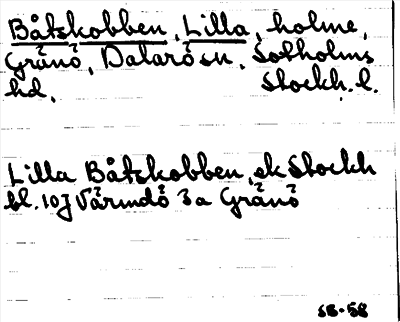 Båtskobben, Lilla, holme,
Gränö, Dalarö sn, Sotholms
hd, Stockh. l.
Lilla Båtskobben, ek Stockh
bl. 107 Värmdö 3a Gränö
SB-58